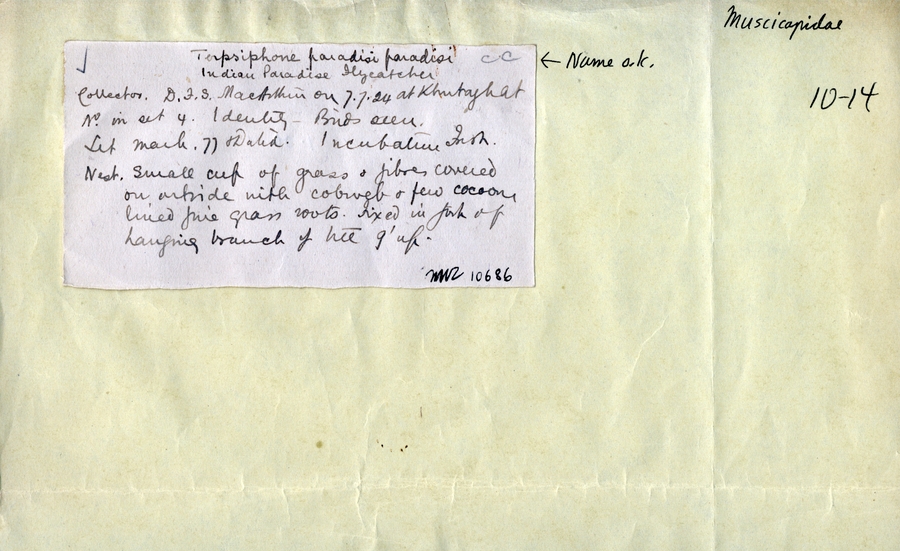 Muscicapidae
10-14
Terpsiphone paradisi paradisi CC
← Name o.k.
Indian Paradise Flycatcher
Collector. D.F.S. MacArthur on 7.7.24 at
No in set 4. Identity - Birds seen.
Set mark. 77 & Data. Incubation Fresh.
Nest. Small cup of grass & fibres covered
on outside with cobweb & few cocoons
lined fine grass roots. Fixed in fork of
hanging branch of tree 9' up.
MVZ 10686